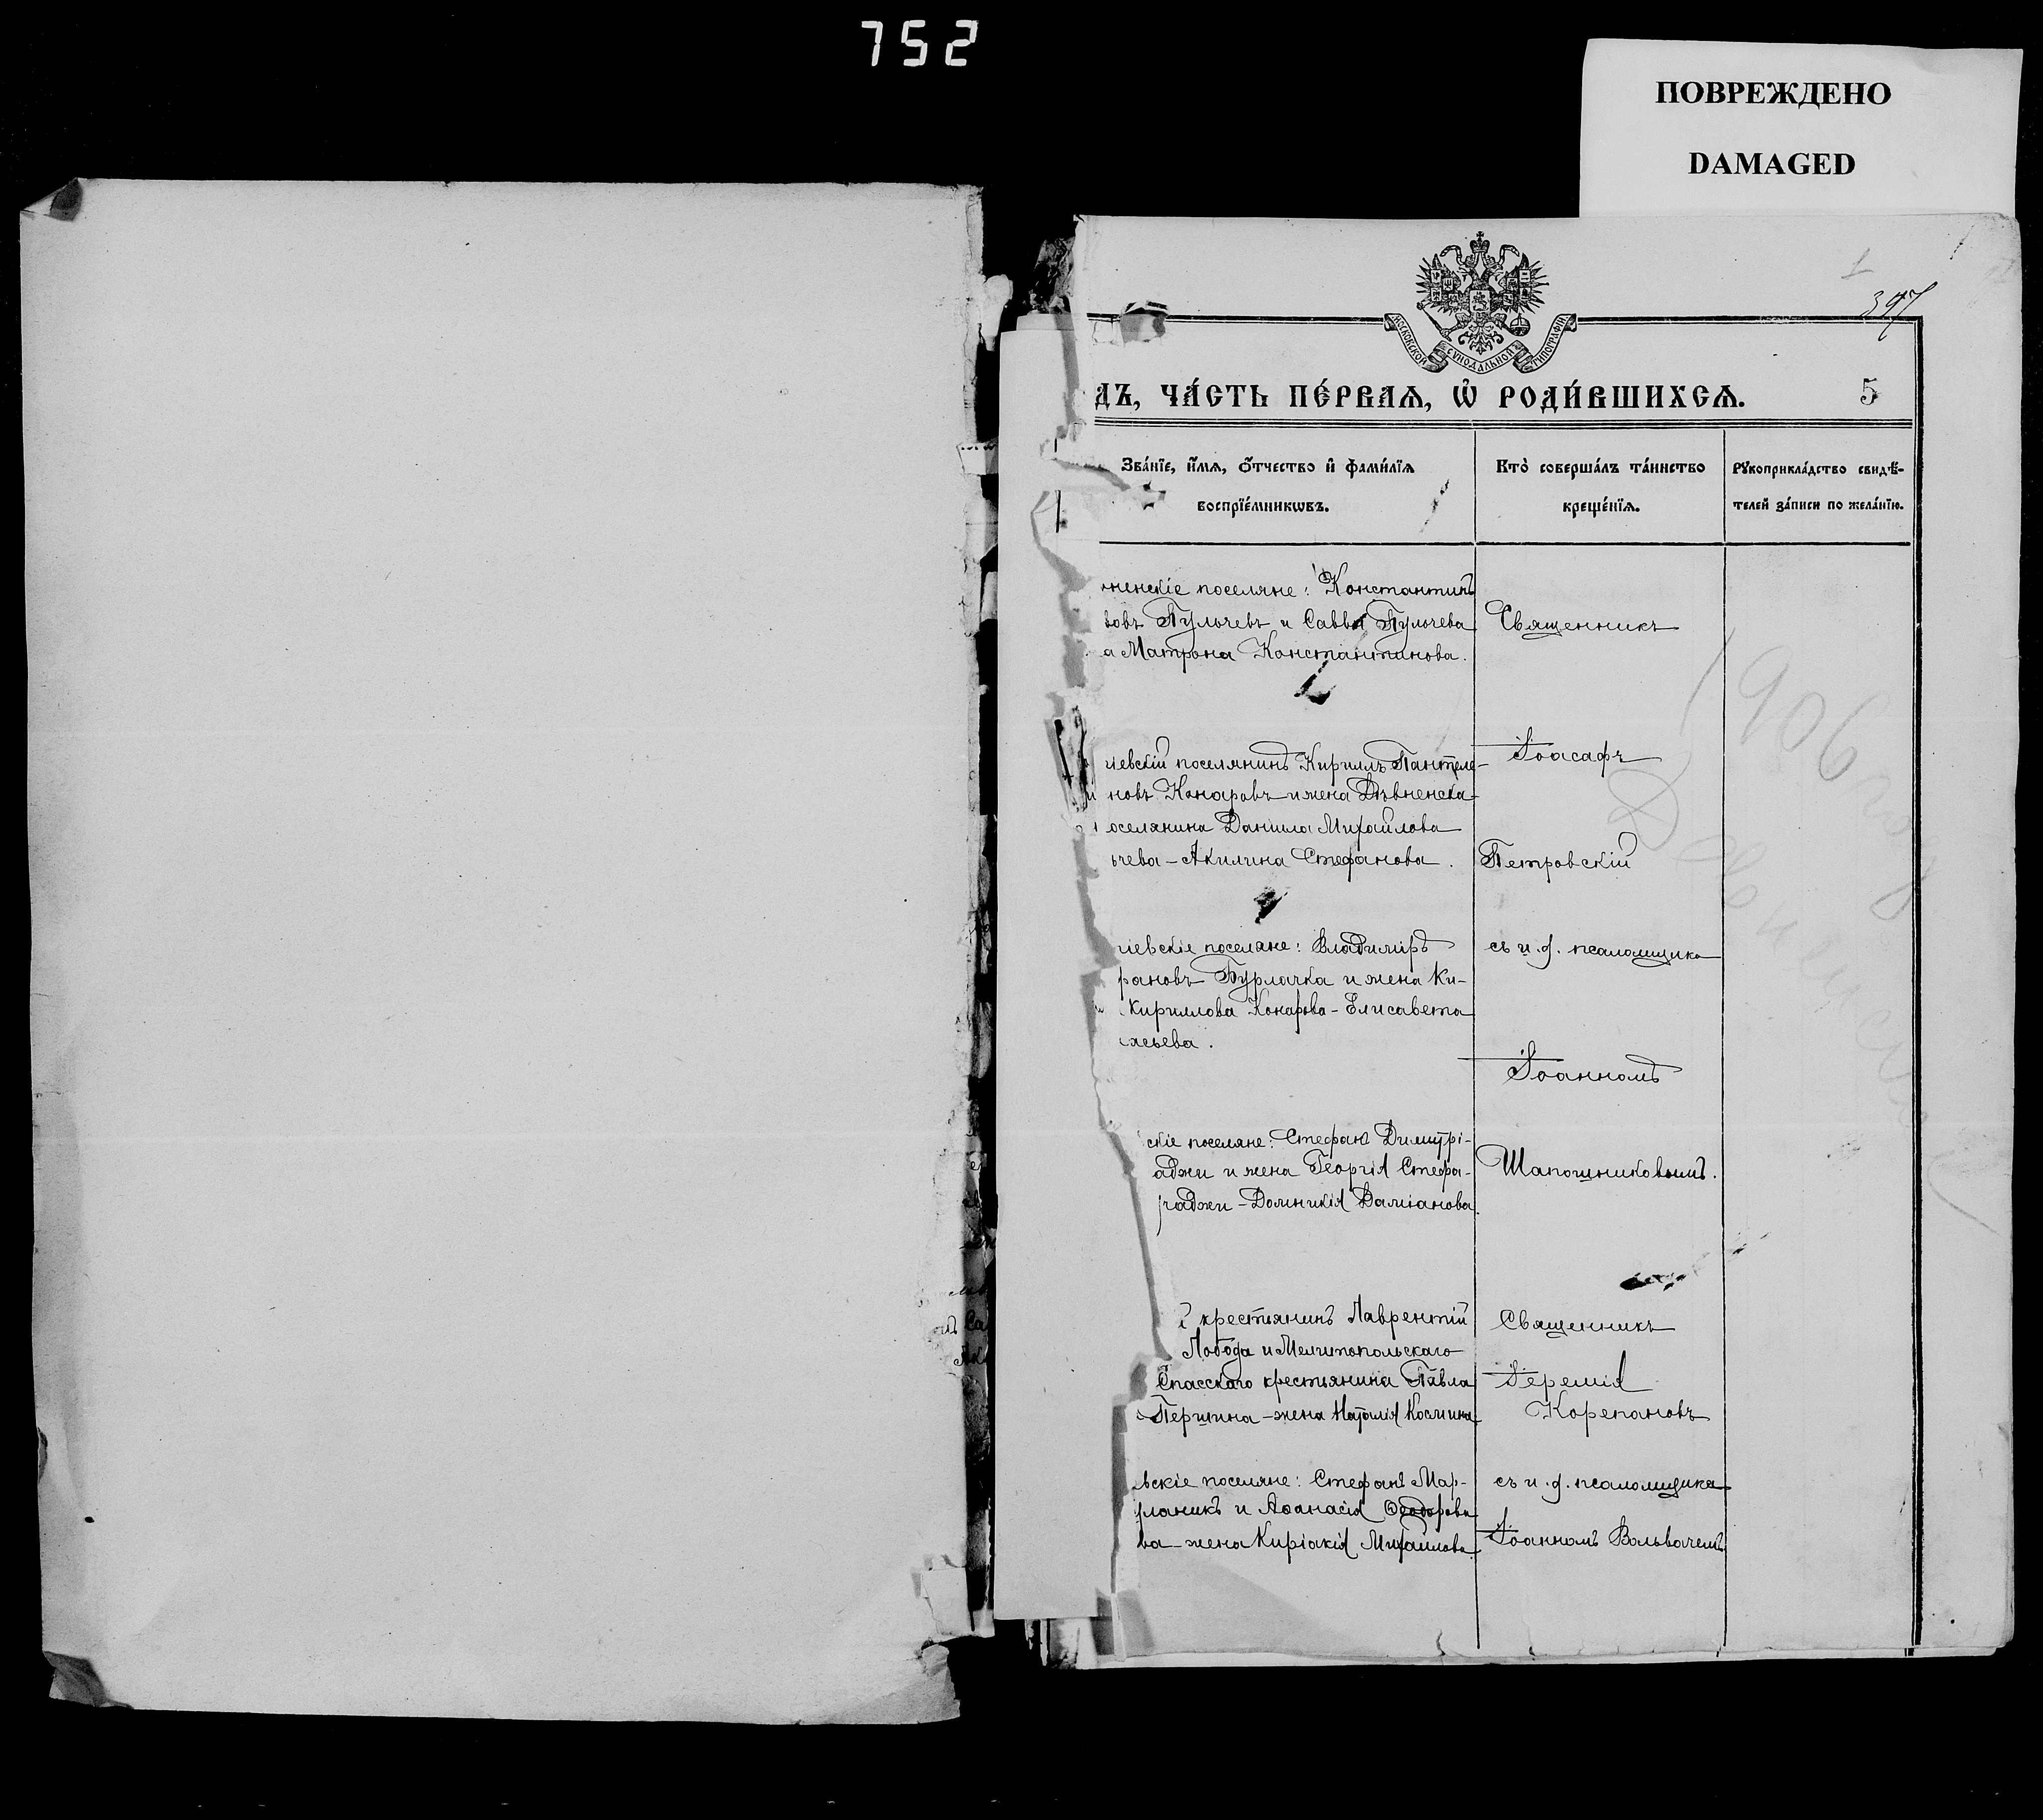 752
ПОВРЕЖДЕНО
DAMAGED
1
397
МОСКОВСКОЙ СУНОДАЛЬНОЙ ТИПОГРАФІИ
ДЪ, ЧА́СТЬ ПЕ́РВАѦ, Ѿ РОДИ́ВШИХСѦ.
5
Зва́нїе, и҆́мѧ, ѻ҆́тчество и҆ фами́лїѧ
воспрїе́мникѡвъ.
Кто̀ соверша́лъ та́инство
креще́нїѧ.
Рꙋкоприкла́дство свидѣ́-
телей за́писи по жела́нїю.
ненскіе поселяне: Константинъ
вовъ Пульчевъ и Савви Пульчева
а Матрона Константинова.
Священникъ
1906 год
Іоасафъ
іевскій поселянинъ Кириллъ Пантеле-
новъ Конаровъ и жена Дѣвненска-
оселянина Даніила Михайлова
ьчева - Акилина Стефанова.
Петровскій
іевскіе поселяне: Владиміръ
фановъ Бурлачка и жена Ки-
Кириллова Конарова - Елисавета
сьева.
съ и. д. псаломщика
Іоанномъ
скіе поселяне: Стефанъ Димитрі-
аджи и жена Георгія Стефа-
раджи - Домникія Даміанова.
Шапошниковымъ.
крестьянинъ Лаврентій
Лобода и Мелитопольскаго
Спасскаго крестьянина Павла
Першина - жена Наталія Космина
Священникъ
Іеремія
Корепановъ
ьскіе поселяне: Стефанъ Мар-
рланикъ и Аѳанасія Ѳеодорова
ва - жена Киріакія Михайлова.
съ и. д. псаломщика
Іоанномъ Вольвачемъ